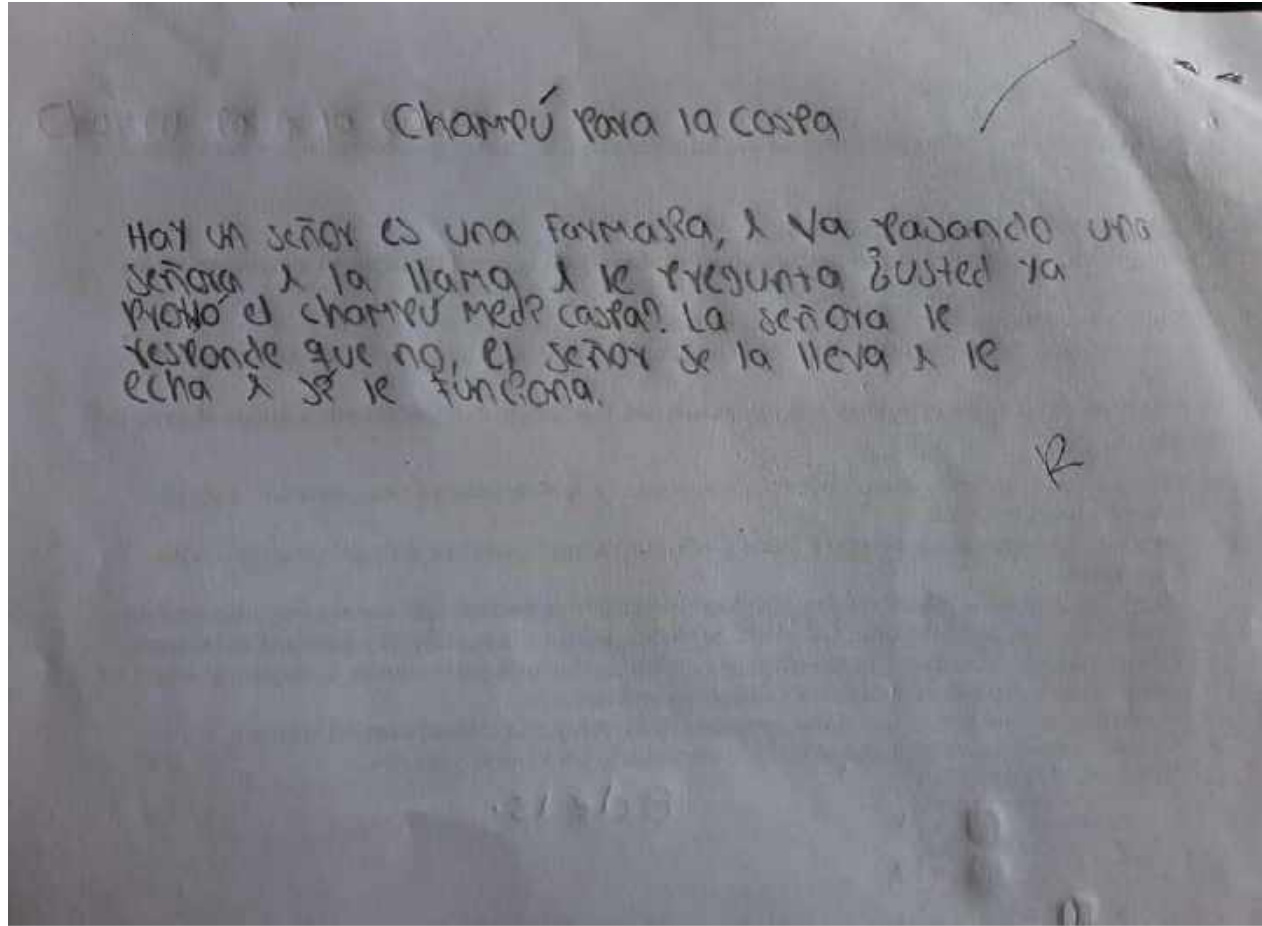 Champú para la caspa
Hay un señor es una Farmasia, y va pasando una
señora y la llama y le pregunta ¿usted ya
probó el champú medi caspa? La señora le
responde que no, el señor se la lleva y le
echa y si le funciona.
R